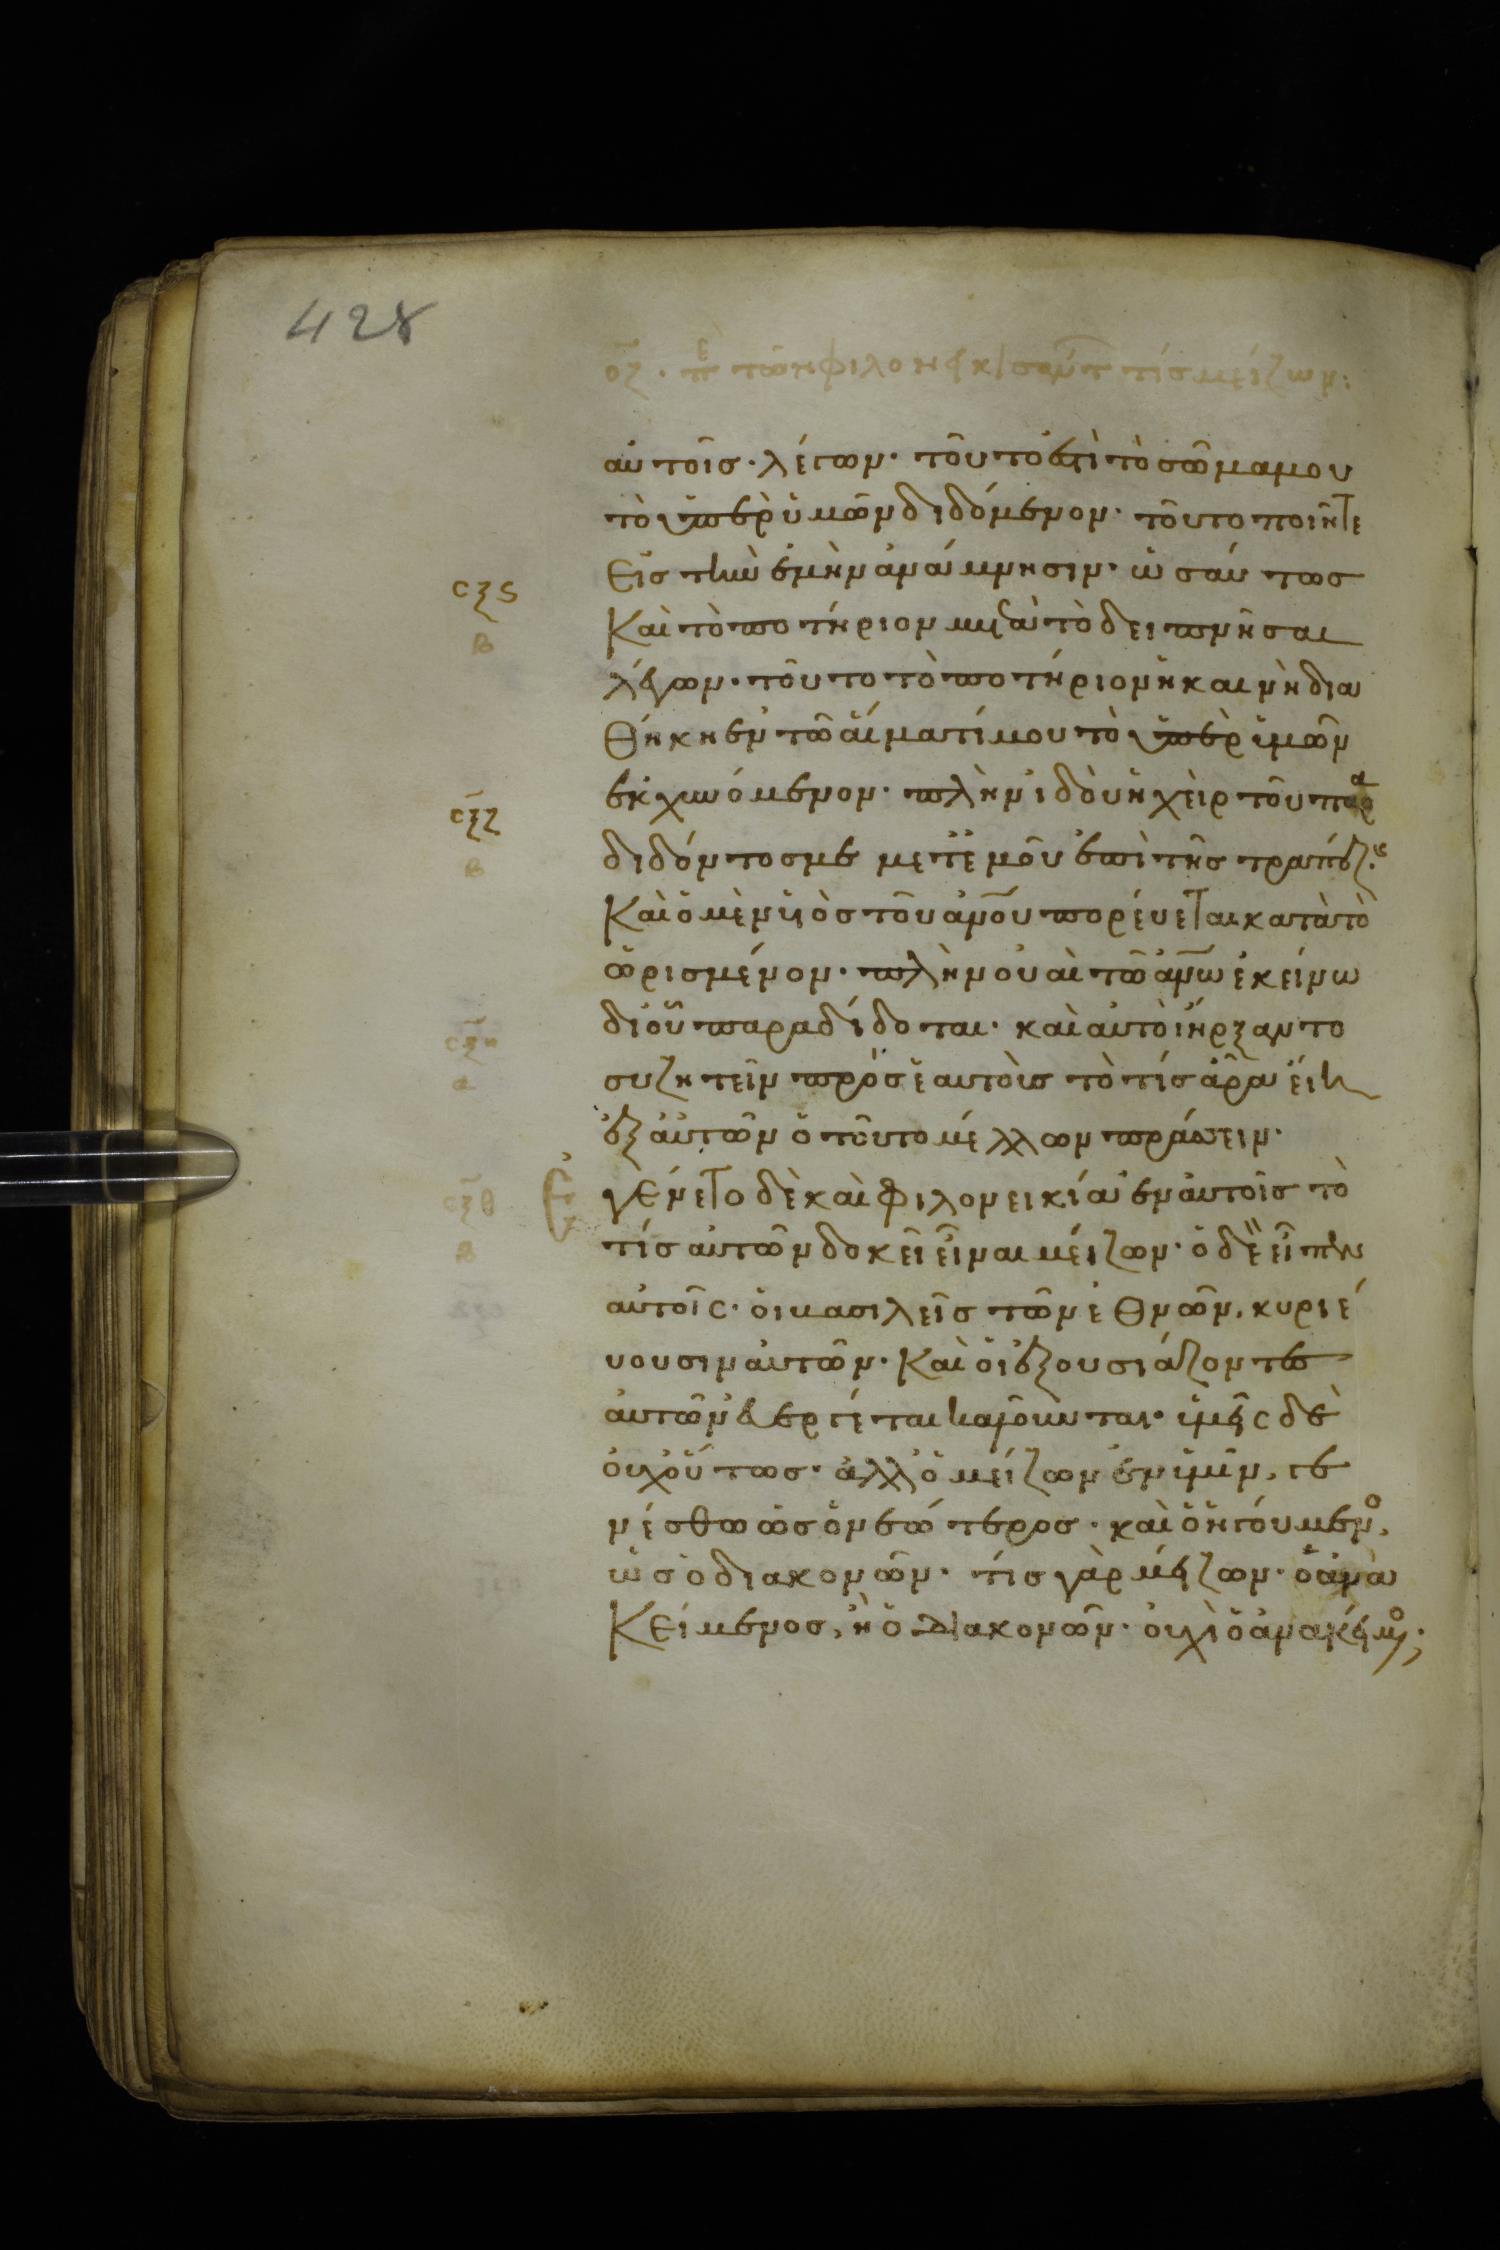 428
οζ · πε τῶν φιλονεικησάντ τίς μείζων:
αὐτοῖσ · λέγων · τοῦτό ἐστὶ τὸ σῶμα μου
τὸ ὑπὲρ ὑμῶν διδόμενον · τοῦτο ποιῆτε
Εἰσ τὴν ἐμὴν ἀνάμνησιν · ὡσαύτωσ
σξς
Καὶ τὸ ποτήριον μετὰ τὸ δειπνῆσαι
β
λέγων · τοῦτο τὸ ποτήριον ἡ καινὴ δια
Θήκη ἐν τῶ αἵματί μου τὸ ὑπὲρ ὑμῶν
ἐκχυνόμενον · πλὴν ἰδοὺ ἡ χεὶρ τοῦ παρα
σξζ
διδόντοσ με μετ' ἐμοῦ ἐπὶ τῆσ τραπέζησ
β
Καὶ ὁ μὲν ὑιὸσ τοῦ ἀνου πορεύεται κατὰ τὸ
ὡρισμένον · πλὴν οὐαὶ τῶ ἀνω ἐκείνω
δι οὗ παραδίδοται · καὶ αὐτοὶ ἤρξαντο
σξη
συζητεῖν πρὸσ ἑαυτοὺσ τὸ τίσ ἄρα εἴη
α
ἐξ αὐτῶν ὁ τοῦτο μέλλων πράσσειν ·
σξθ
Ἐγένετο δὲ καὶ φιλονεικία ἐν αὐτοῖσ τὸ
β
τίσ αὐτῶν δοκεῖ εἶναι μείζων · ὁ δὲ εἶπεν
αὐτοῖς · ὁι βασιλεῖσ τῶν ἐθνῶν, κυριέ
υουσιν αὐτῶν · Καὶ ὁι ἐξουσιάζοντεσ
ἀυτῶν ἐυεργέται καλοῦνται · ὑμεῖς δὲ
ὀυχ οὕτωσ · ἀλλ ὁ μείζων ἐν ὑμῖν, γε
νέσθω ὡσ ὁ νεώτεροσ · καὶ ὁ ἡγούμενο,
ὡσ ὁ διακονῶν · τίσ γὰρ μείζων · ὁ ἀνα
Κείμενοσ, ἢ ὁ διακονῶν · ὀυχὶ ὁ ἀνακείμο;